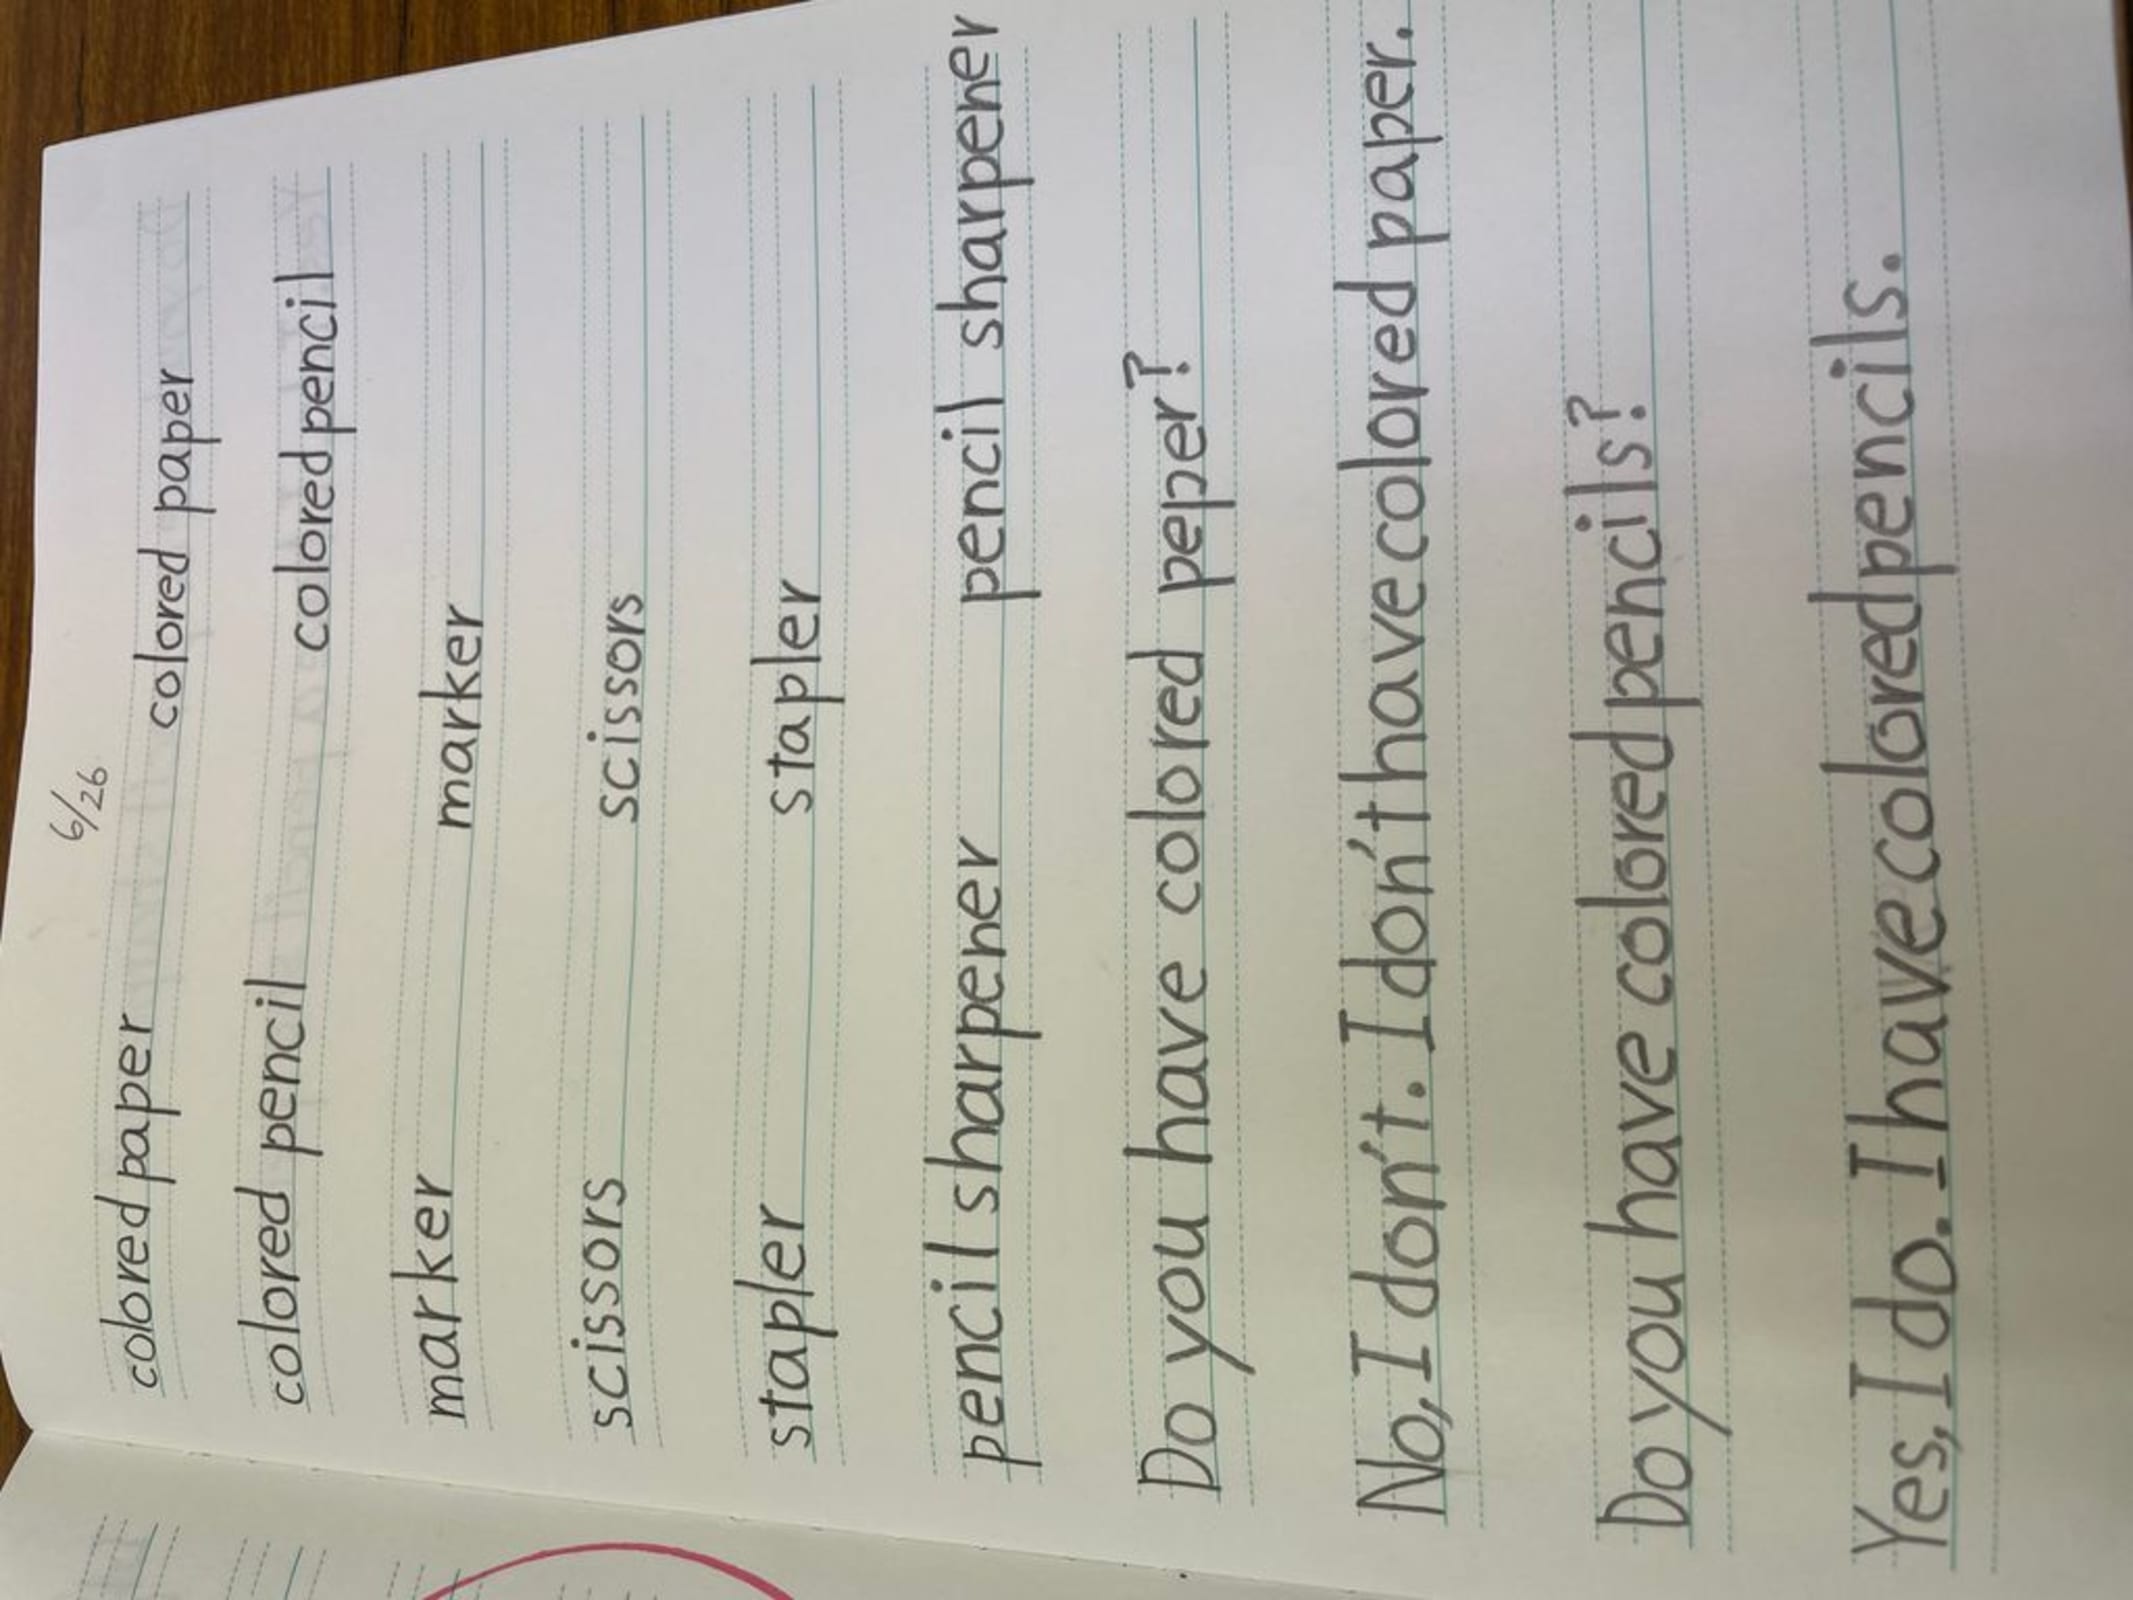 6/26
colored paper colored paper
colored pencil colored pencil
marker marker
scissors scissors
stapler stapler
pencil sharpener pencil sharpener
Do you have colored peper?
No, I don't. I don't have colored paper.
Do you have colored pencils?
Yes, I do. I have colored pencils.